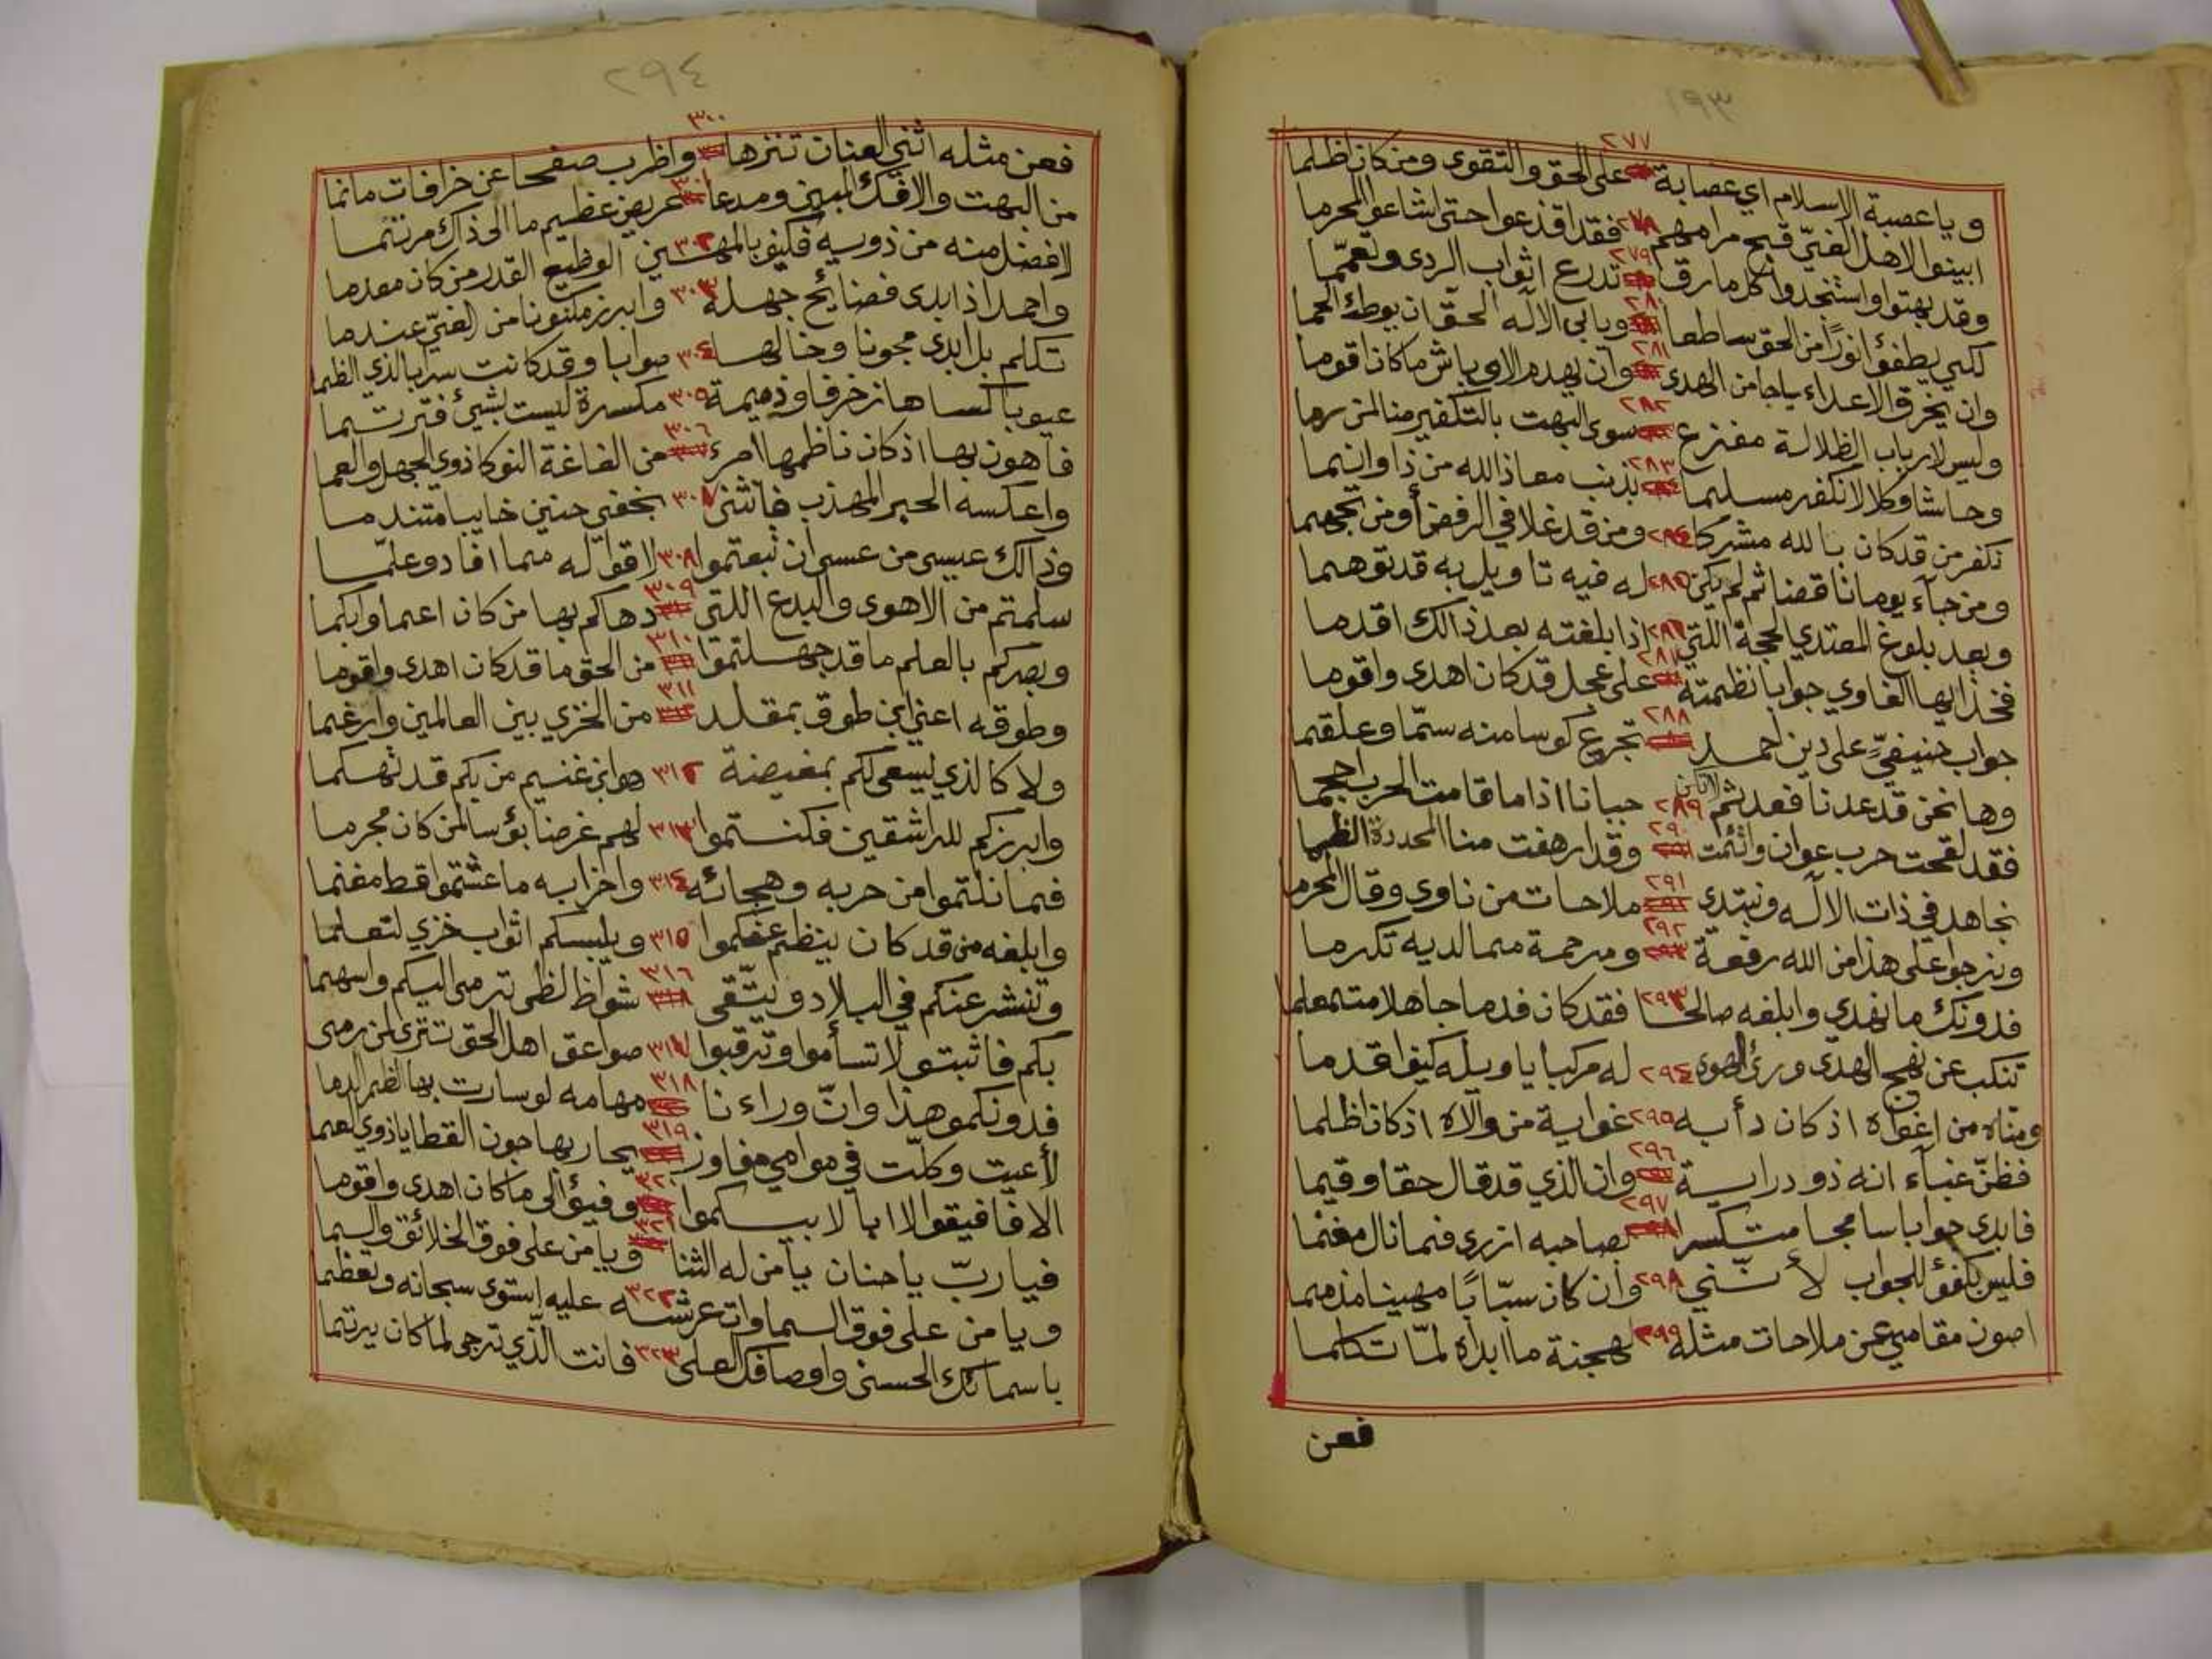 ١٩٣
ويا عصبة الاسلام اي عصابة ٢٧٧ على الحق والتقوى ومن كان ظلما
ابينوا لاهل الغيّ قبح مرامهم ٢٧٨ فقد اقذعوا حتى اشاعوا المحرما
وقد بهتوا واستنجدوا كل مارق ٢٧٩ تدرع اثواب الردى وتعمّما
لكي يطفؤا نورًا من الحق ساطعا ٢٨٠ ويابى الاله الحقّ ان يوطئ الحما
وان يخرق الاعداء ياجا من الهدى ٢٨١ وان يهدم الاوباش ما كان اقوما
وليس لارباب الظلالة مفزع ٢٨٢ سوى البهت بالتكفير منا لمن رما
وحاشا وكلا لا نكفر مسلما ٢٨٣ بذنب معاذ الله من ذا وانما
نكفر من قد كان بالله مشركا ٢٨٤ ومن قد غلا في الرفض أو من تجهما
ومن جاء يوما ناقضا ثم لم يكن ٢٨٥ له فيه تاويل به قد توهما
وبعد بلوغ المعتدي الحجة اللتي ٢٨٦ اذا بلغته بعد ذالك اقدما
فخذ ايها الغاوي جوابا نظمته ٢٨٧ على عجل قد كان اهدى واقوما
جواب حنيفيٍّ على دين احمد ٢٨٨ تجرع كوسا منه سمّا وعلقما
وها نحن قد عدنا فعد ثم لا تكن ٢٨٩ جبانا اذا ما قامت الحرب احجما
فقد لقحت حرب عوان واثئمت ٢٩٠ وقد ارهفت منا المحددة الظما
نجاهد في ذات الاله ونبتدي ٢٩١ ملاحات من ناوى وقال المحرما
ونرجوا على هذا من الله رفعة ٢٩٢ ومرحمة مما لديه تكرما
فدونك ما نهدي وابلغه صالحا ٢٩٣ فقد كان فدما جاهلا متمعلما
تنكب عن نهج الهدى ورئ الهوى ٢٩٤ له مركبا يا ويله كيف اقدما
ومناه من اغواه اذ كان دأبه ٢٩٥ غواية من والاه اذ كان اظلما
فظنّ غباء انه ذو دراية ٢٩٦ وان الذي قد قال حقا وقيما
فابدى جوابا سامجا متكسرا ٢٩٧ بصاحبه ازرى فما نال مغنما
فليس بكفؤ للجواب لأنني ٢٩٨ وان كان سبّابًا مهينا مذمما
اصون مقامي عن ملاحات مثله ٢٩٩ لهجنة ما ابداه لمّا تكلما
فعن
٢٩٤
فعن مثله اثني العنان تنزها ٣٠٠ واظرب صفحا عن خرافات ما نما
من البهت والافك المبين ومدعا ٣٠١ عريض عظيم ما الى ذاك مرتما
لافضل منه من ذويه فكيف بالمهين ٣٠٢ الوظيع القدر من كان معدما
واحمد اذ ابدى فضائح جهله ٣٠٣ وابرز مكنونا من الغيّ عندما
تكلم بل ابدى مجونا وخالها ٣٠٤ صوابا وقد كانت سرابا لذي الظما
عيوبا كساها زخرفا وذميمة ٣٠٥ مكسرة ليست بشيئ فترتسما
فاهون بها اذ كان ناظمها امرء ٣٠٦ من الفاغة النوكا ذوي الجهل والعما
واعكسه الحبر المهذب فانثنى ٣٠٧ بخفي حنين خايبا متندما
وذالك عيسى من عسى ان تبعتموا ٣٠٨ لاقواله مما افاد وعلمّا
سلمتم من الاهوى والبدع اللتي ٣٠٩ دهاكم بها من كان اعما وابكما
وبصركم بالعلم ما قد جهلتموا ٣١٠ من الحق ما قد كان اهدى واقوما
وطوقه اعني ابن طوق بمقلد ٣١١ من الخزي بين العالمين وارغما
ولا كالذي يسعى لكم بمغيضة ٣١٢ هو ابن غنيم من بكم قد تهكما
وابرزكم للراشقين فكنتموا ٣١٣ لهم غرضا بؤسا لمن كان مجرما
فما نلتموا من حربه وهجائه ٣١٤ واخزابه ما عشتموا قط مغنما
وابلغه من قد كان ينظم عنكموا ٣١٥ ويلبسكم اثواب خزي لتعلما
وتنشر عنكم في البلاد ويتّقى ٣١٦ شواظ لظى ترمى اليكم واسهما
بكم فاثبتوا لا تسأموا وترقبوا ٣١٧ صواعق اهل الحق تترى لمن رمى
فدونكموا هذا وانّ وراءنا ٣١٨ مهامه لو سارت بها الظمر الدما
لأعيت وكلّت في موامي مفاوز ٣١٩ يحار بها جون القطا يا ذوي العما
الا فافيقوا لا ابا لابيكموا ٣٢٠ وفيؤ الى ما كان اهدى واقوما
فيا ربّ يا حنان يا من له الثنا ٣٢١ ويا من على فوق الخلائق والسما
ويا من على فوق السماوات عرشه ٣٢٢ عليه استوى سبحانه وتعظما
باسمائك الحسنى واوصافك العلى ٣٢٣ فانت الذّي ترجى لما كان يرتما